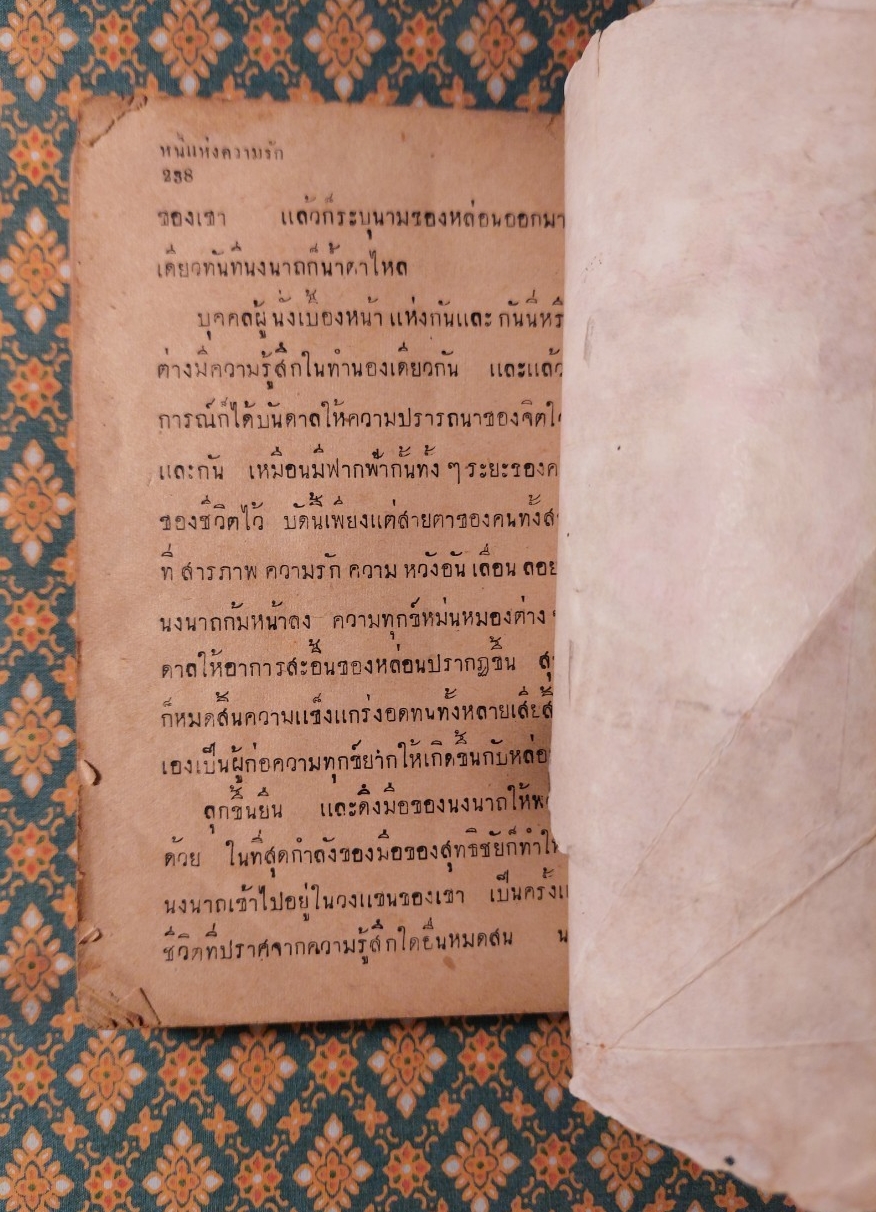 หนี้แห่งความรัก
238
ของเขา แล้วก็ระบุนามของหล่อนออกมา
เดียวทันทีนงนาถก็น้ำตาไหล
บุคคลผู้นั่งเบื้องหน้าแห่งกันและกันนี้หรื
ต่างมีความรู้สึกในทำนองเดียวกัน และแล้ว
การณ์ก็ได้บันดาลให้ความปรารถนาของจิตใ
และกัน เหมือนมีฟากฟ้ากั้นทั้ง ๆ ระยะของค
ของชีวิตไว้ บัดนี้เพียงแต่สายตาของคนทั้งส
ที่ สารภาพ ความรัก ความ หวังอัน เลื่อน ลอย
นงนาถก้มหน้าลง ความทุกข์หม่นหมองต่าง
ดาลให้อาการสะอื้นของหล่อนปรากฏขึ้น สุ
ก็หมดสิ้นความแข็งแกร่งอดทนทั้งหลายเสียสิ้
เองเป็นผู้ก่อความทุกข์ยากให้เกิดขึ้นกับหล่อ
ลุกขึ้นยืน และดึงมือของนงนาถให้พ
ด้วย ในที่สุดกำลังของมือของสุทธิชัยก็ทำให
นงนาถเข้าไปอยู่ในวงแขนของเขา เป็นครั้งแ
ชีวิตที่ปราศจากความรู้สึกใดอื่นหมดสิ้น น